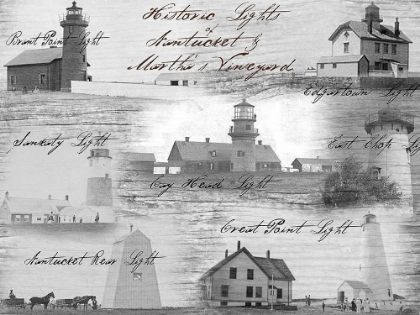 Historic Lights
of
Nantucket &
Martha's Vineyard
Brant Point Light
Edgartown Light
Sankaty Light
Gay Head Light
East Chop Light
Nantucket Rear Light
Great Point Light